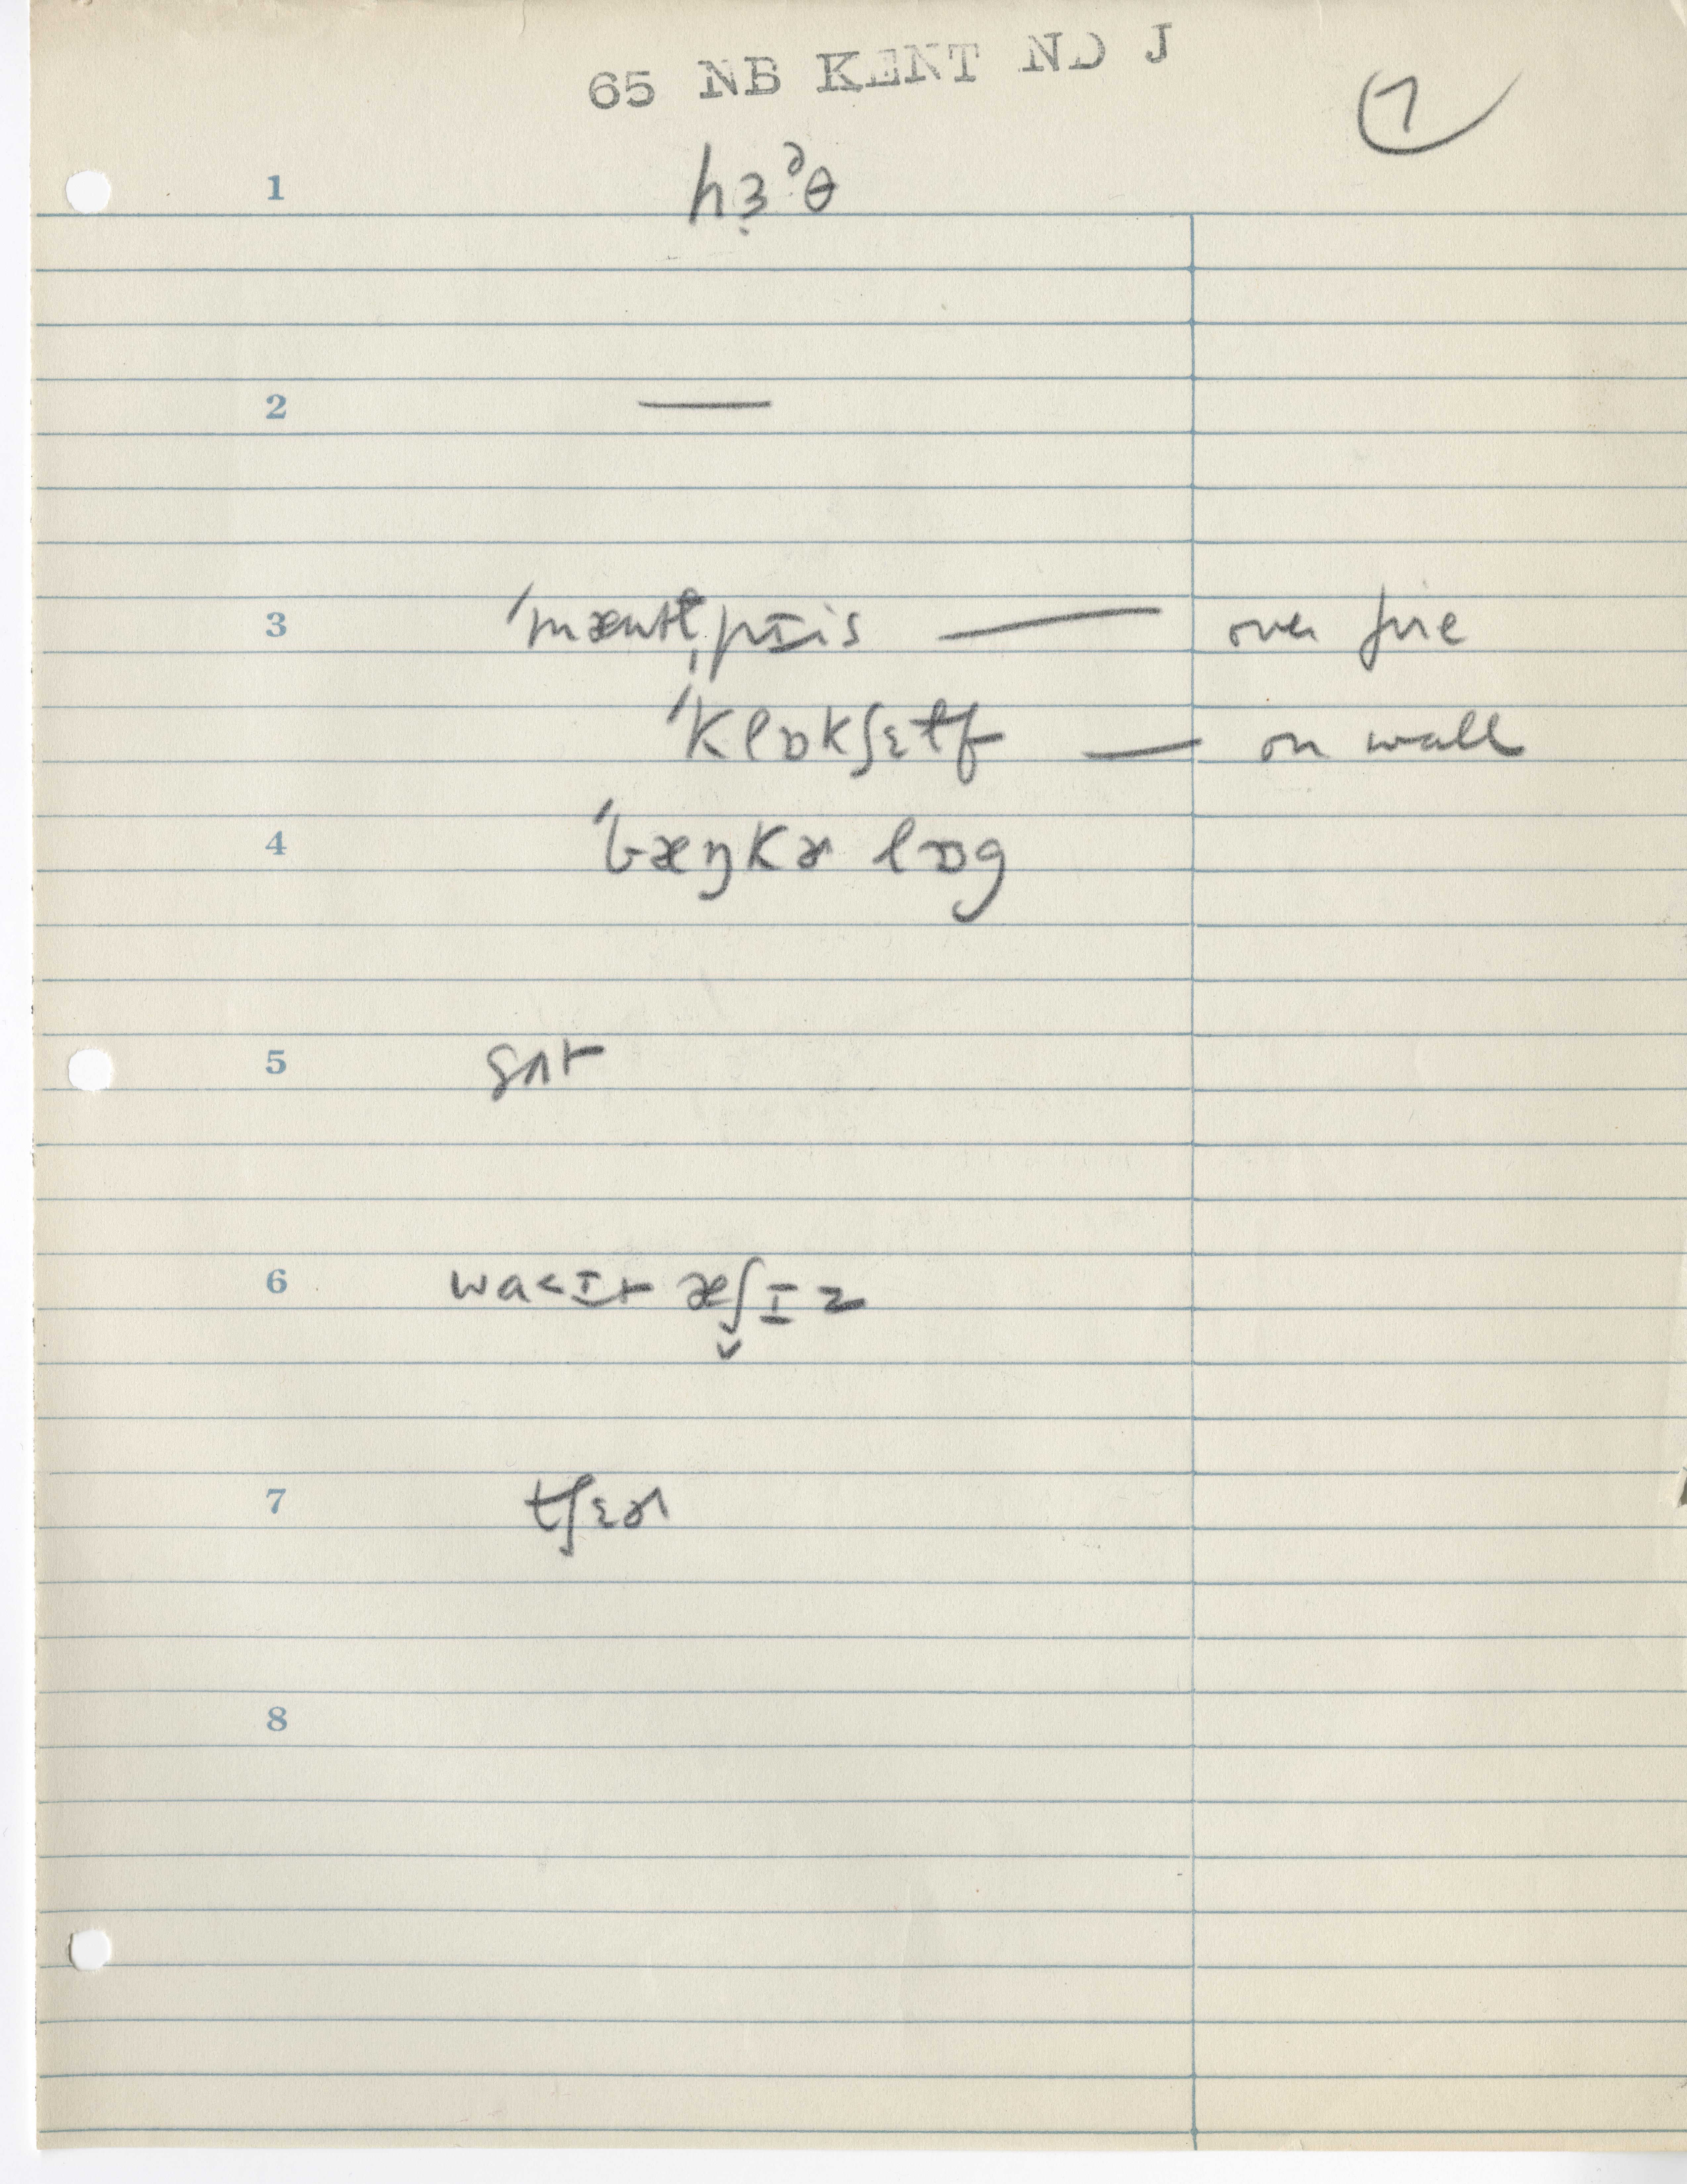 65 NB KENT ND J
7
1 hɜ̣ᵊθ
2 —
3 ˈmæntlˌpɪis — over fire
ˈklɒkʃɛlf — on wall
4 ˈbæŋkɚ lɒg
5 sʌt
6 waɪt æʃ̬ɪz
7 tʃɛɚ
8